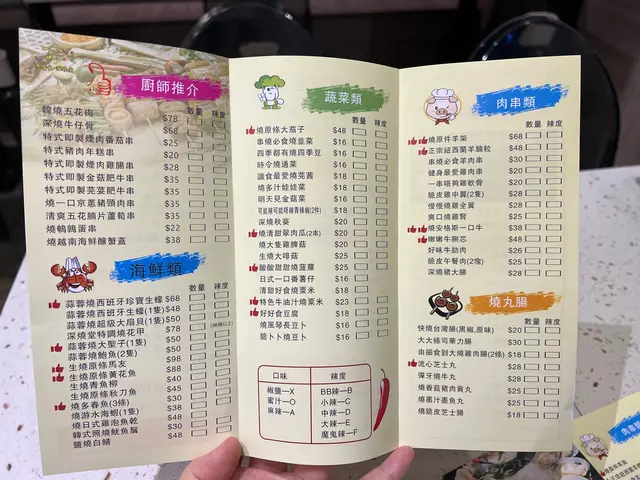 廚師推介
數量 辣度
韓燒五花肉 $78
深燒牛仔骨 $68
特式即製煙肉番茄串 $25
特式豬肉年糕串 $20
特式即製煙肉雞腸串 $28
特式即製金菇肥牛串 $35
特式即製芫荽肥牛串 $35
燒一口京蔥豬頸肉串 $35
清爽五花腩片蘆荀串 $35
燒鵪鶉蛋串 $22
燒越南海鮮釀蟹蓋 $38
海鮮類
數量 辣度
蒜蓉燒西班牙珍寶生蠔 $68
蒜蓉燒西班牙生蠔(1隻) $48
蒜蓉燒超級大扇貝(1隻) $50
深燒堂特調燒花甲 $78
蒜蓉燒大聖子(1隻) $50
蒜蓉燒鮑魚(2隻) $50
生燒原條馬友 $98
生燒原條黃花魚 $88
生燒青魚柳 $40
生燒原條秋刀魚 $45
燒多春魚(3條) $30
燒游水海蝦(1隻) $38
燒日式雞泡魚乾 $48
韓式照燒魷魚鬚 $30
鹽燒白鱔 $48
蔬菜類
數量 辣度
燒原條大茄子 $48
串燒必食燒韭菜 $16
四季都有燒四季豆 $16
時令燒通菜 $16
識食最愛燒莞茜 $18
燒多汁娃娃菜 $18
明天見金菇菜 $16
可能辣可能唔辣青辣椒(2件) $18
深燒秋葵 $20
燒清甜翠肉瓜(2串) $20
燒大隻雞脾菇 $20
生燒大啡菇 $25
酸酸甜甜燒菠蘿 $25
日式一口番薯仔 $16
清甜好食燒粟米 $18
特色牛油汁燒粟米 $23
好好食豆腐 $18
燒風琴長豆卜 $16
脆卜卜燒豆卜 $16
口味 辣度
椒鹽—X BB辣—B
蜜汁—O 小辣—C
麻辣—A 中辣—D
大辣—E
魔鬼辣—F
肉串類
數量 辣度
燒原件羊架 $68
正宗紐西蘭羊腩粒 $48
串燒必食羊肉串 $30
健身最愛雞肉串 $20
一串唔夠雞軟骨 $20
脆皮雞中翼(2隻) $28
慢慢燒雞全翼 $28
爽口燒雞腎 $25
燒安格斯一口牛 $38
嫩嫩牛脷芯 $48
好味牛肋肉 $26
脆皮午餐肉(2塊) $25
深燒豬大腸 $28
燒丸腸
數量 辣度
快燒台灣腸(黑椒,原味) $20
大大條司華力腸 $30
由細食到大燒雞肉腸(2條) $18
流心芝士丸 $28
彈牙燒牛丸 $28
燒香菇豬肉貢丸 $25
燒墨汁墨魚丸 $25
燒脆皮芝士腸 $18